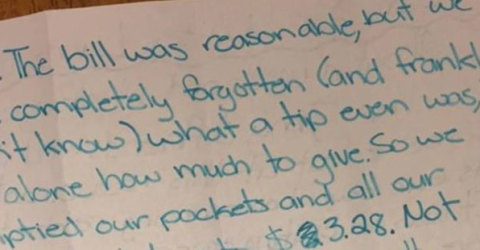 The bill was reasonable, but we
completely forgotten (and frankl
it know) what a tip even was,
alone how much to give. So we
ptied our pockets and all our
$ 3.28. Not